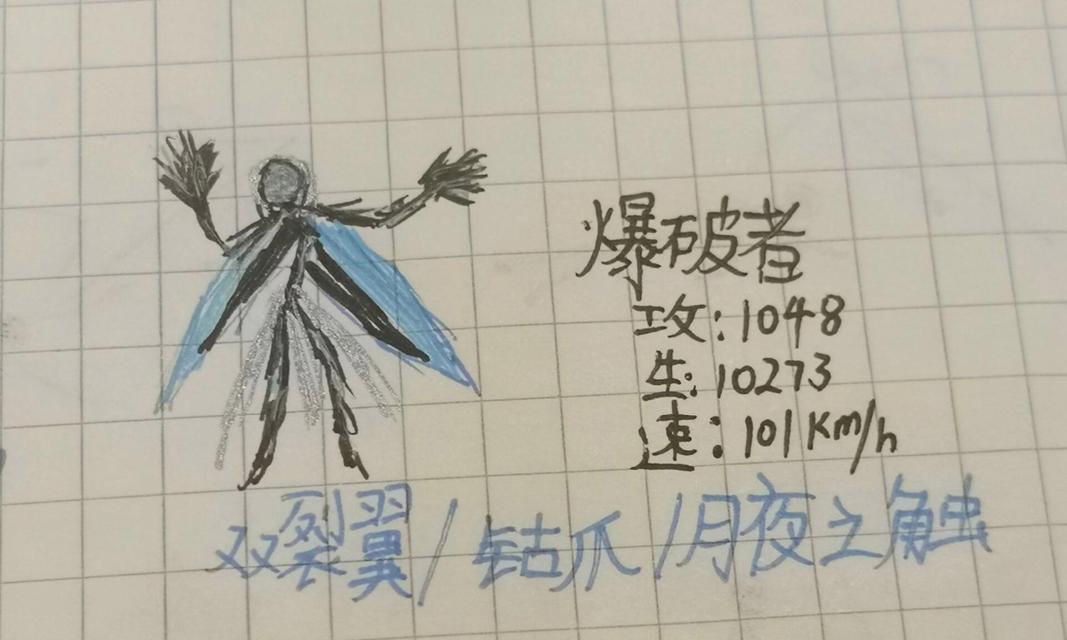 爆破者
攻:1048
生:10273
速:101km/h
双裂翼/钴爪/月夜之触